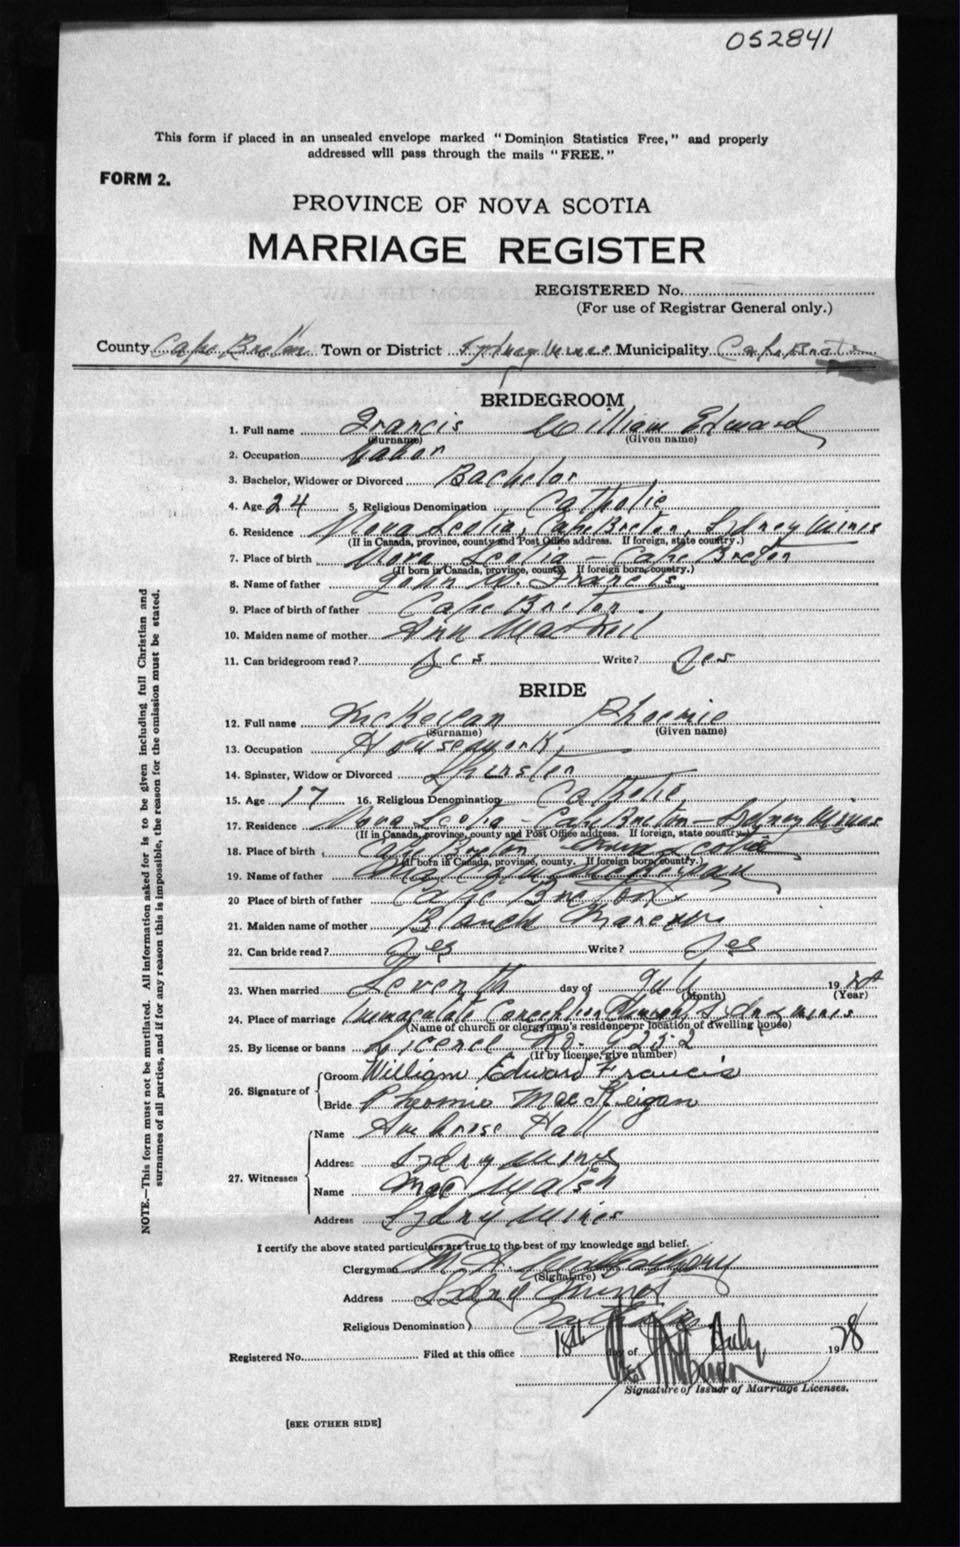 052841
This form if placed in an unsealed envelope marked "Dominion Statistics Free," and properly
addressed will pass through the mails "FREE."
FORM 2.
PROVINCE OF NOVA SCOTIA
MARRIAGE REGISTER
REGISTERED No.
(For use of Registrar General only.)
County Cape Breton Town or District Sydney Mines Municipality Cape Breton
BRIDEGROOM
1. Full name Francis William Edward
(Surname) (Given name)
2. Occupation Labor
3. Bachelor, Widower or Divorced Bachelor
4. Age 24 5. Religious Denomination Catholic
6. Residence Nova Scotia, Cape Breton, Sydney Mines
(If in Canada, province, county and Post Office address. If foreign, state country.)
7. Place of birth Nova Scotia - Cape Breton
(If born in Canada, province, county. If foreign born, country.)
8. Name of father John W. Francis
9. Place of birth of father Cape Breton
10. Maiden name of mother Ann
11. Can bridegroom read? Yes Write? Yes
BRIDE
12. Full name McKeigan Pheomie
(Surname) (Given name)
13. Occupation Housework
14. Spinster, Widow or Divorced Spinster
15. Age 17 16. Religious Denomination Catholic
17. Residence Nova Scotia - Cape Breton - Sydney Mines
(If in Canada, province, county and Post Office address. If foreign, state country.)
18. Place of birth Cape Breton Nova Scotia
(If born in Canada, province, county. If foreign born, country.)
19. Name of father
20 Place of birth of father Cape Breton
21. Maiden name of mother Blanch
22. Can bride read? Yes Write? Yes
23. When married Seventh day of July 19 28
(Month) (Year)
24. Place of marriage Immaculate Conception Church S Mines
(Name of church or clergyman's residence or location of dwelling house)
25. By license or banns Licence No. 9252
(If by license, give number)
26. Signature of Groom William Edward Francis
Bride Pheomie MacKeigan
27. Witnesses Name Ambrose Hall
Address Sydny Mines
Name Mae Walsh
Address Sydny Mines
I certify the above stated particulars are true to the best of my knowledge and belief.
Clergyman M. A.
(Signature)
Address Sydney Mines
Religious Denomination Catholic
Registered No. Filed at this office 18th day of July 1928
Signature of Issuer of Marriage Licenses.
[SEE OTHER SIDE]
NOTE.—This form must not be mutilated. All information asked for is to be given including full Christian and
surnames of all parties, and if for any reason this is impossible, the reason for the omission must be stated.